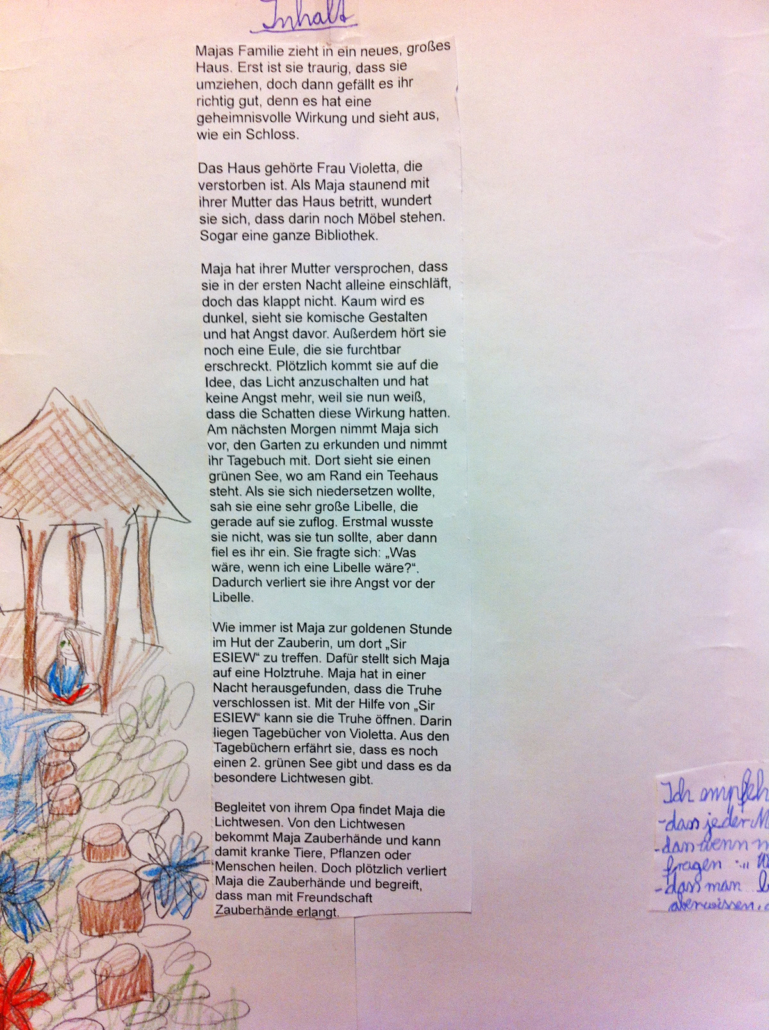 Inhalt
Majas Familie zieht in ein neues, großes
Haus. Erst ist sie traurig, dass sie
umziehen, doch dann gefällt es ihr
richtig gut, denn es hat eine
geheimnisvolle Wirkung und sieht aus,
wie ein Schloss.
Das Haus gehörte Frau Violetta, die
verstorben ist. Als Maja staunend mit
ihrer Mutter das Haus betritt, wundert
sie sich, dass darin noch Möbel stehen.
Sogar eine ganze Bibliothek.
Maja hat ihrer Mutter versprochen, dass
sie in der ersten Nacht alleine einschläft,
doch das klappt nicht. Kaum wird es
dunkel, sieht sie komische Gestalten
und hat Angst davor. Außerdem hört sie
noch eine Eule, die sie furchtbar
erschreckt. Plötzlich kommt sie auf die
Idee, das Licht anzuschalten und hat
keine Angst mehr, weil sie nun weiß,
dass die Schatten diese Wirkung hatten.
Am nächsten Morgen nimmt Maja sich
vor, den Garten zu erkunden und nimmt
ihr Tagebuch mit. Dort sieht sie einen
grünen See, wo am Rand ein Teehaus
steht. Als sie sich niedersetzen wollte,
sah sie eine sehr große Libelle, die
gerade auf sie zuflog. Erstmal wusste
sie nicht, was sie tun sollte, aber dann
fiel es ihr ein. Sie fragte sich: „Was
wäre, wenn ich eine Libelle wäre?“.
Dadurch verliert sie ihre Angst vor der
Libelle.
Wie immer ist Maja zur goldenen Stunde
im Hut der Zauberin, um dort „Sir
ESIEW“ zu treffen. Dafür stellt sich Maja
auf eine Holztruhe. Maja hat in einer
Nacht herausgefunden, dass die Truhe
verschlossen ist. Mit der Hilfe von „Sir
ESIEW“ kann sie die Truhe öffnen. Darin
liegen Tagebücher von Violetta. Aus den
Tagebüchern erfährt sie, dass es noch
einen 2. grünen See gibt und dass es da
besondere Lichtwesen gibt.
Begleitet von ihrem Opa findet Maja die
Lichtwesen. Von den Lichtwesen
bekommt Maja Zauberhände und kann
damit kranke Tiere, Pflanzen oder
Menschen heilen. Doch plötzlich verliert
Maja die Zauberhände und begreift,
dass man mit Freundschaft
Zauberhände erlangt.
Ich empfeh
-dass jeder M
-dan wenn
fragen
-dass man